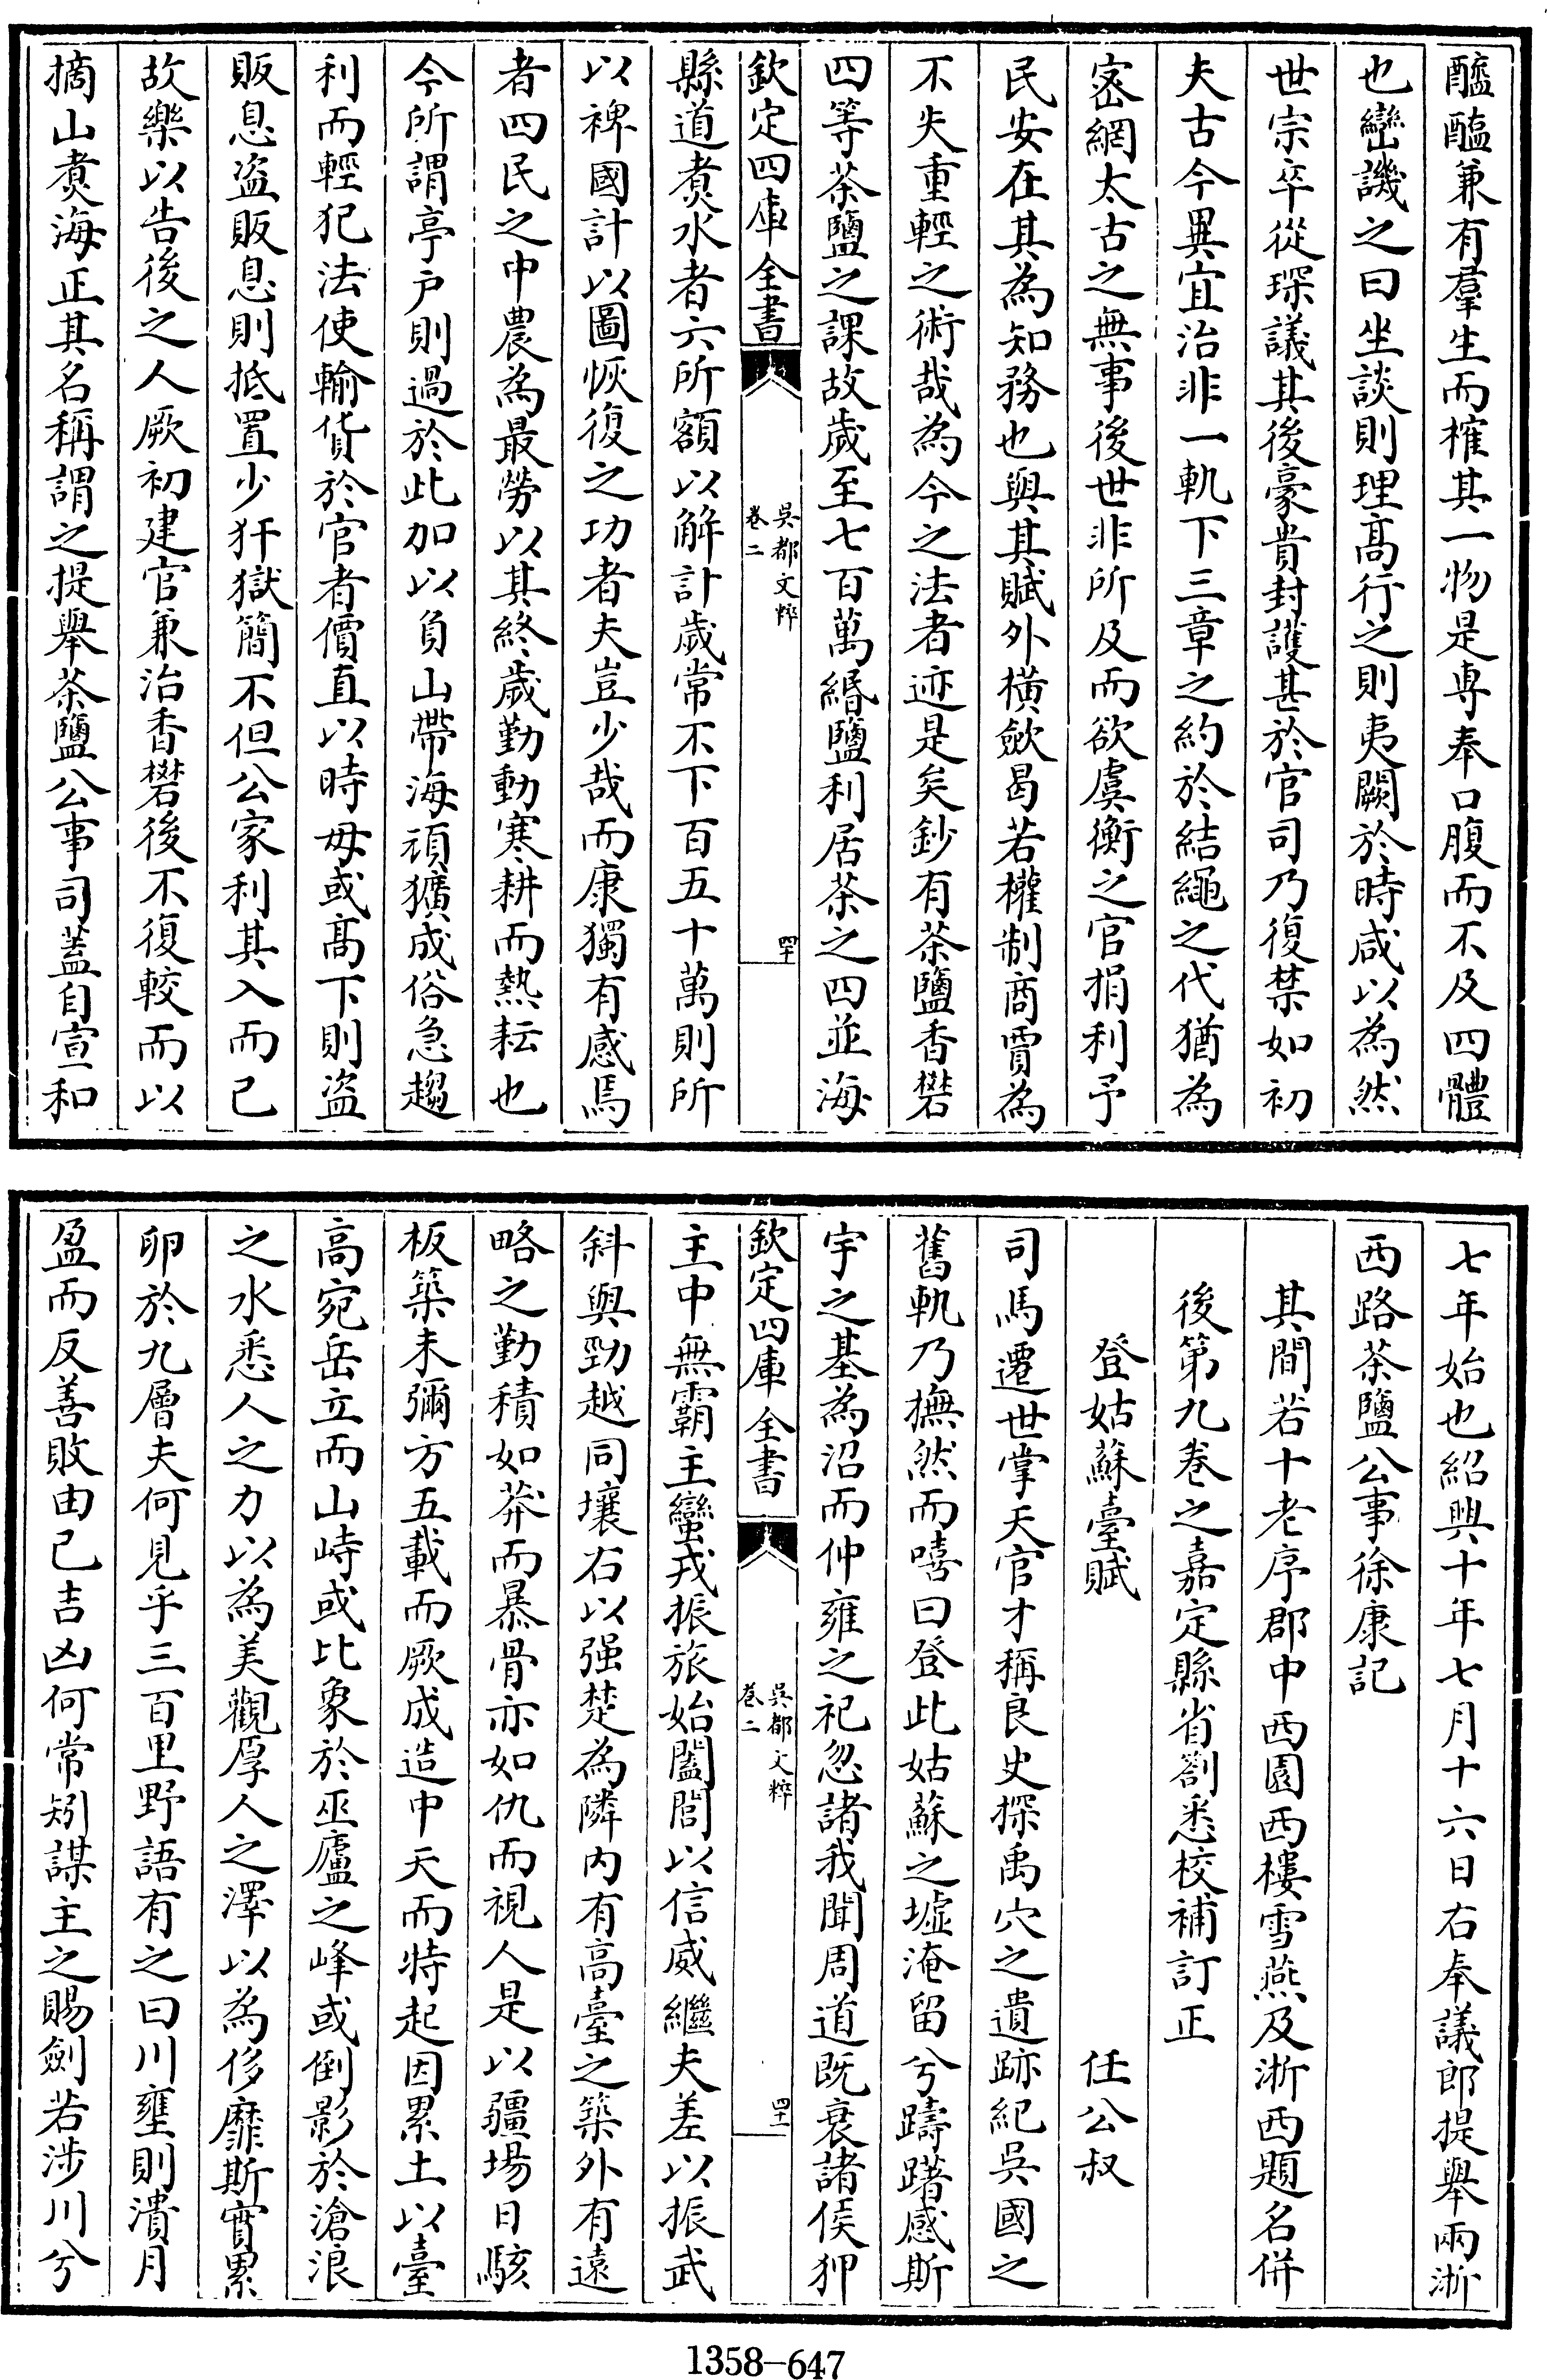 醯醢兼有羣生而榷其一物是専奉口腹而不及四體
也巒譏之曰坐談則理髙行之則夷闕於時咸以為然
世宗卒從琛議其後豪貴封護甚於官司乃復禁如初
夫古今異宜治非一軌下三章之約於結繩之代猶為
宻網太古之無事後世非所及而欲虞衡之官捐利予
民安在其為知務也與其賦外橫歛曷若權制商賈為
不失重輕之術哉為今之法者迹是矣鈔有茶鹽香礬
四等茶鹽之課故歲至七百萬緡鹽利居茶之四並海
欽定四庫全書
吳都文粹
卷二
四十
縣道煑水者六所額以解計歲常不下百五十萬則所
以裨國計以圖恢復之功者夫豈少哉而康獨有感焉
者四民之中農為最勞以其終歲勤動寒耕而熱耘也
今所謂亭户則過於此加以負山帶海頑獷成俗急趨
利而輕犯法使輸貨於官者價直以時毋或髙下則盜
販息盜販息則抵罝少犴獄簡不但公家利其入而已
故樂以告後之人厥初建官兼治香礬後不復較而以
摘山煑海正其名稱謂之提舉茶鹽公事司蓋自宣和
七年始也紹興十年七月十六日右奉議郎提舉兩淅
西路茶鹽公事徐康記
其間若十老序郡中西園西樓雪燕及淅西題名併
後第九卷之嘉定縣省劄悉校補訂正
登姑蘇臺賦
任公叔
司馬遷世掌天官才稱良史探禹穴之遺跡紀吳國之
舊軌乃撫然而嘻曰登此姑蘇之墟淹留兮躊躇感斯
宇之基為沼而仲雍之祀忽諸我聞周道既衰諸侯狎
欽定四庫全書
吳都文粹
卷二
四十一
主中無霸主蠻戎振旅始闔閭以信威繼夫差以振武
斜與勁越同壤右以强楚為隣内有高臺之築外有遠
略之勤積如莽而暴骨亦如仇而視人是以疆場日駭
板築未彌方五載而厥成造中天而特起因累土以臺
高宛岳立而山峙或比象於巫廬之峰或倒影於滄浪
之水悉人之力以為美觀厚人之澤以為侈靡斯實累
卵於九層夫何見乎三百里野語有之曰川壅則潰月
盈而反善敗由已吉凶何常矧謀主之賜劍若涉川兮
1358-647